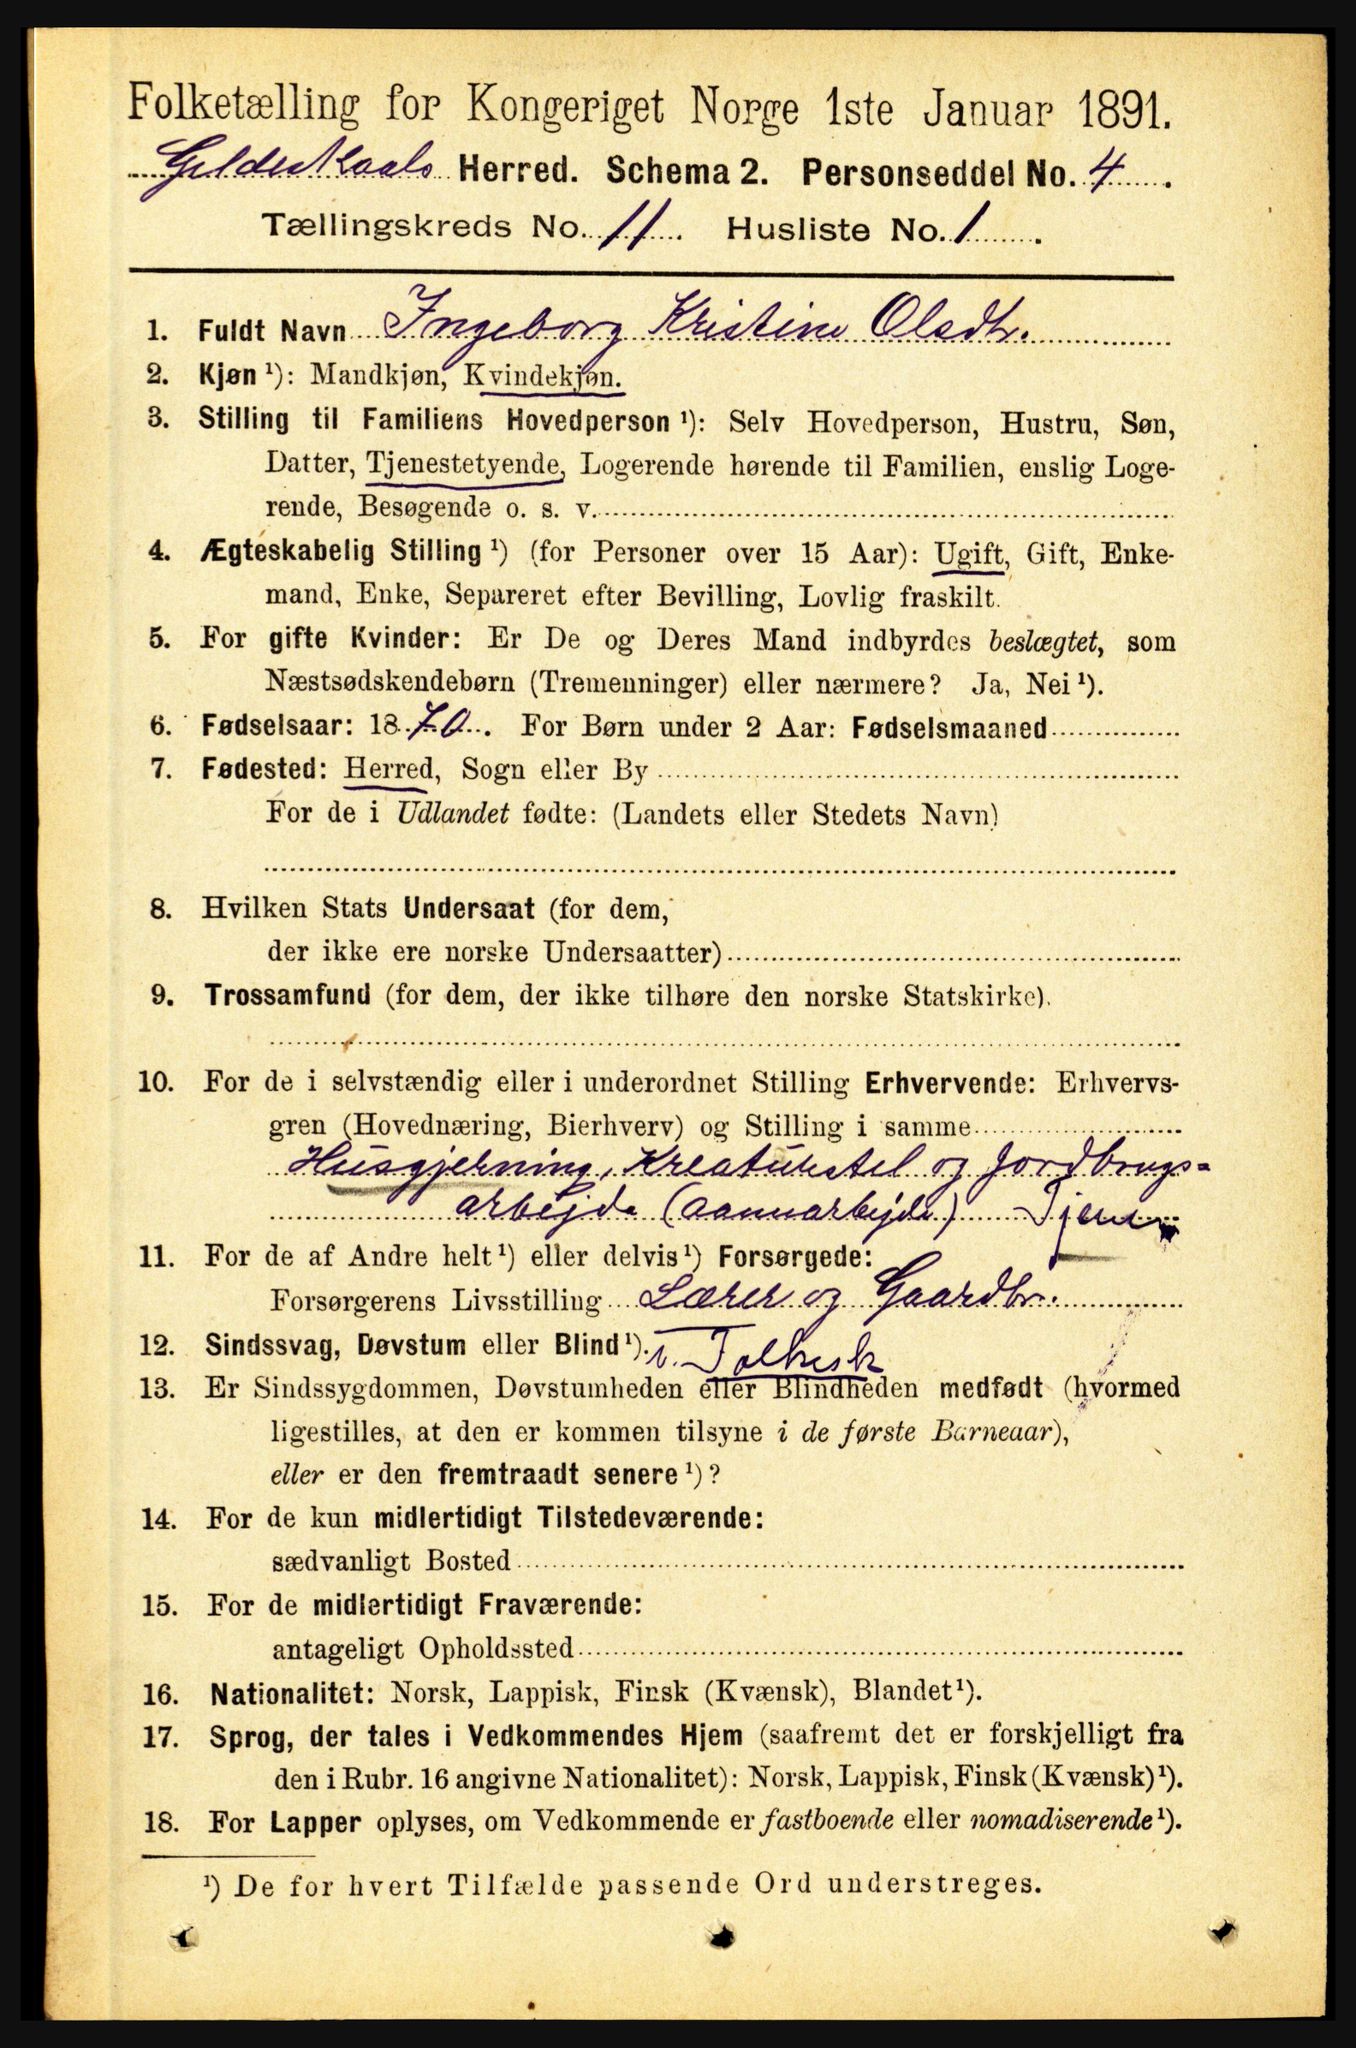 Folketælling for Kongeriget Norge 1ste Januar 1891.
Gildeskaals Herred. Schema 2. Personseddel No. 4.
Tællingskreds No. 11. Husliste No. 1.
1. Fuldt Navn Ingeborg Kristine Olsdtr.
2. Kjøn¹): Mandkjøn, Kvindekjøn.
3. Stilling til Familiens Hovedperson¹): Selv Hovedperson, Hustru, Søn,
Datter, Tjenestetyende, Logerende hørende til Familien, enslig Loge-
rende, Besøgende o. s. v.
4. Ægteskabelig Stilling¹) (for Personer over 15 Aar): Ugift, Gift, Enke-
mand, Enke, Separeret efter Bevilling, Lovlig fraskilt.
5. For gifte Kvinder: Er De og Deres Mand indbyrdes beslægtet, som
Næstsødskendebørn (Tremenninger) eller nærmere? Ja, Nei¹).
6. Fødselsaar: 1870. For Børn under 2 Aar: Fødselsmaaned
7. Fødested: Herred, Sogn eller By
For de i Udlandet fødte: (Landets eller Stedets Navn)
8. Hvilken Stats Undersaat (for dem,
der ikke ere norske Undersaatter)
9. Trossamfund (for dem, der ikke tilhøre den norske Statskirke).
10. For de i selvstændig eller i underordnet Stilling Erhvervende: Erhvervs-
gren (Hovednæring, Bierhverv) og Stilling i samme
Husgjerning, Kreaturstel og Jordbrugs=
arbejde (aannarbejde) Tjener
11. For de af Andre helt¹) eller delvis¹) Forsørgede:
Forsørgerens Livsstilling Lærer og Gaardbr.
12. Sindssvag, Døvstum eller Blind¹).
13. Er Sindssygdommen, Døvstumheden eller Blindheden medfødt (hvormed
ligestilles, at den er kommen tilsyne i de første Barneaar),
eller er den fremtraadt senere¹)?
14. For de kun midlertidigt Tilstedeværende:
sædvanligt Bosted
15. For de midlertidigt Fraværende:
antageligt Opholdssted
16. Nationalitet: Norsk, Lappisk, Finsk (Kvænsk), Blandet¹).
17. Sprog, der tales i Vedkommendes Hjem (saafremt det er forskjelligt fra
den i Rubr. 16 angivne Nationalitet): Norsk, Lappisk, Finsk (Kvænsk)¹).
18. For Lapper oplyses, om Vedkommende er fastboende eller nomadiserende¹).
¹) De for hvert Tilfælde passende Ord understreges.